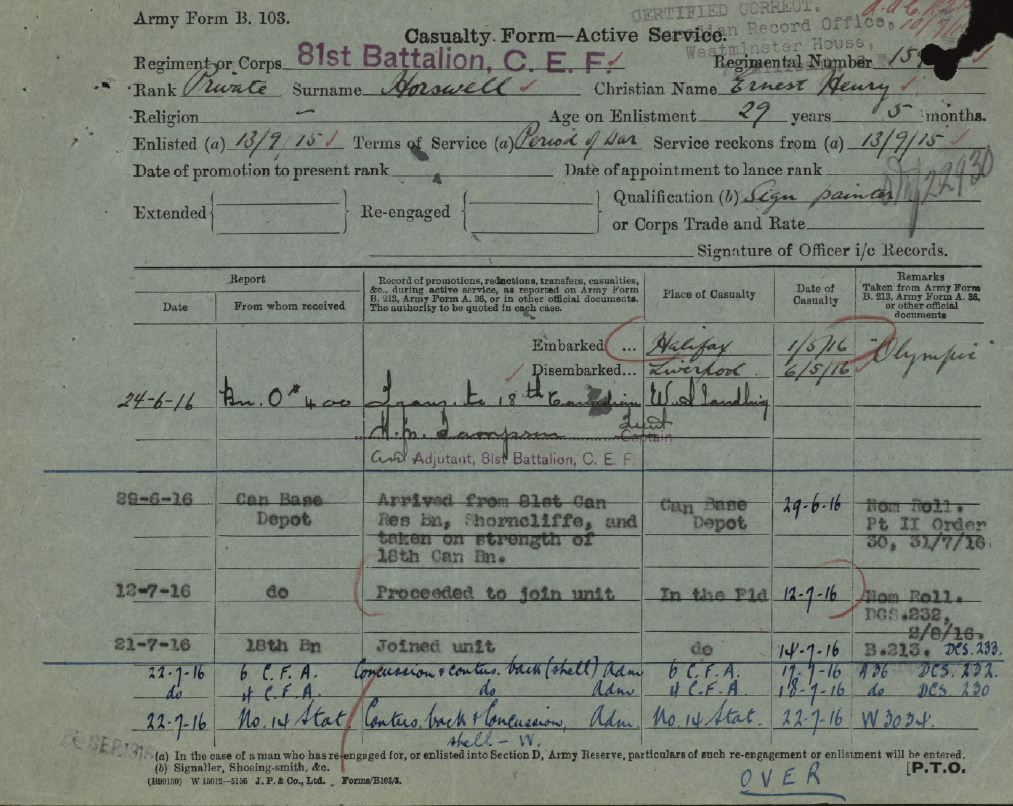 Army Form B. 103.
CERTIFIED CORRECT.
Record Office,
Westminster House,
Casualty Form—Active Service.
Regiment or Corps 81st Battalion, C. E. F. Regimental Number 15
Rank Private Surname Horswell Christian Name Ernest Henry
Religion — Age on Enlistment 29 years 5 months.
Enlisted (a) 13/9/15 Terms of Service (a) Period of War Service reckons from (a) 13/9/15
Date of promotion to present rank Date of appointment to lance rank
22930
Extended Re-engaged Qualification (b) Sign painter
or Corps Trade and Rate
Signature of Officer i/c Records.
Report
Date From whom received
Record of promotions, reductions, transfers, casualties,
&c., during active service, as reported on Army Form
B. 213, Army Form A. 36, or in other official documents.
The authority to be quoted in each case.
Place of Casualty
Date of
Casualty
Remarks
Taken from Army Form
B. 213, Army Form A. 36,
or other official
documents
Embarked ... Halifax 1/5/16 "Olympic"
Disembarked... Liverpool 6/5/16
24-6-16 Bn. O 400 Trans. to 18th Canadian W. Sandling
Lieut
Captain
Adjutant, 81st Battalion, C. E. F.
29-6-16 Can Base Depot Arrived from 81st Can Can Base Depot 29-6-16 Nom Roll.
Res Bn, Shorncliffe, and Pt II Order
taken on strength of 30, 31/7/16.
18th Can Bn.
12-7-16 do Proceeded to join unit In the Fld 12-7-16 Nom Roll.
DCS.232,
2/8/16.
21-7-16 18th Bn Joined unit do 14-7-16 B.213. DCS.233.
22-7-16 6 C.F.A. Concussion & contus. back (shell) Adm 6 C.F.A. 17-7-16 A36 DCS.232.
do 4 C.F.A. do Adm 4 C.F.A. 18-7-16 do DCS 230
22-7-16 No. 14 Stat. Contus. back & Concussion, Adm. No. 14 Stat. 22-7-16 W3034.
shell - W.
(a) In the case of a man who has re-engaged for, or enlisted into Section D, Army Reserve, particulars of such re-engagement or enlistment will be entered.
(b) Signaller, Shoeing-smith, &c.
(B99180) W 15012—5156 J. P. & Co., Ltd. Forms/B103/3.
OVER
[P.T.O.